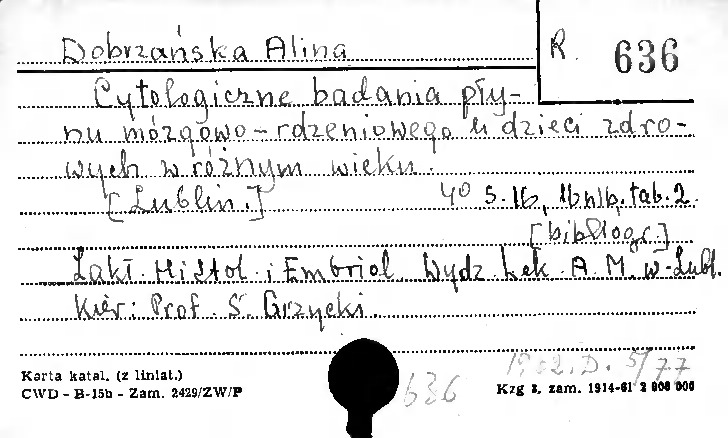 Dobrzańska Alina
R 636
Cytologiczne badania pły-
nu mózgowo-rdzeniowego u dzieci zdro-
wych w różnym wieku.
[Lublin.] 4⁰ s. 16, 1bnlb. tab. 2.
[bibliogr.]
Zakł. Histol. i Embriol. Wydz. Lek. A. M. w Lubl.
Kier: Prof. S. Grzycki.
D. 5/77
Karta katal. (z liniat.)
CWD - B-15b - Zam. 2429/ZW/P
636
Kzg 3, zam. 1914-61 2 000 000